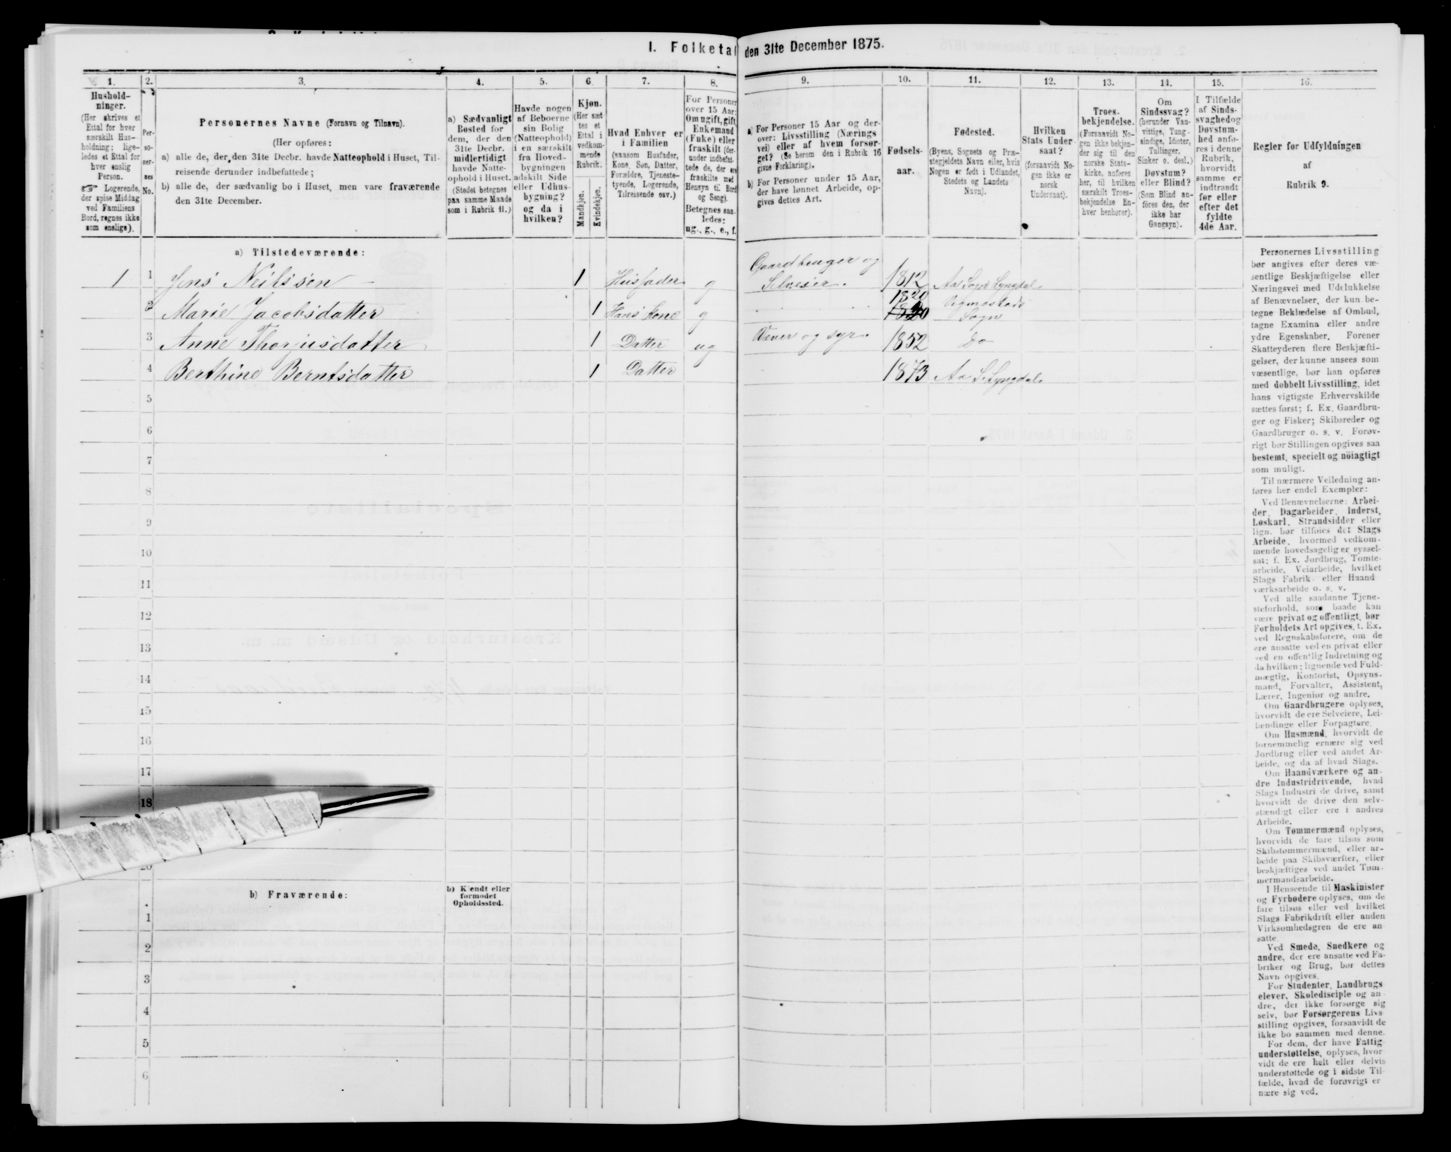 I. Folketa den 31te December 1875.
1.
2.
3.
4.
5.
6.
7.
8.
9.
10.
11.
12.
13.
14.
15.
16.
Hushold-
ninger.
(Her skrives et
Ettal for hver
særskilt Hus-
holdning; lige-
ledes et Ettal for
hver enslig
Person.
Logerende,
der spise Middag
ved Familiens
Bord, regnes ikke
som enslige).
Per-
so-
ner-
nes
No.
Personernes Navne (Fornavn og Tilnavn).
(Her opføres:
a) alle de, der den 31te Decbr. havde Natteophold i Huset, Til-
reisende derunder indbefattede;
b) alle de, der sædvanlig bo i Huset, men vare fraværende
den 31te December.
a) Sædvanligt
Bosted for
dem, der den
31te Decbr.
midlertidigt
havde Natte-
ophold i Huset.
(Stedet betegnes
paa samme Maade
som i Rubrik 11.)
Havde nogen
af Beboerne
sin Bolig
(Natteophold)
i en særskilt
fra Hoved-
bygningen
adskilt Side
eller Udhus-
bygning?
og da i
hvilken?
Kjøn.
(Her sæt-
tes et
Ettal i
vedkom-
mende
Rubrik.
Mandkjøn.
Kvindekjøn.
Hvad Enhver er
i Familien
(saasom Husfader,
Kone, Søn, Datter,
Forældre, Tjeneste-
tyende, Logerende,
Tilreisende osv.)
For Personer
over 15 Aar:
Om ugift, gift,
Enkemand
(Enke) eller
fraskilt (der-
under indbefat-
tede de, der ere
fraskilte med
Hensyn til Bord
og Seng).
Betegnes saa-
ledes:
ug., g., e., f.
a) For Personer 15 Aar og der-
over: Livsstilling (Nærings
vei) eller af hvem forsør-
get? (Se herom den i Rubrik 16
givne Forklaring).
b) For Personer under 15 Aar,
der have lønnet Arbeide, op-
gives dettes Art.
Fødsels-
aar.
Fødested.
(Byens, Sognets og Præ-
stegjeldets Navn eller, hvis
Nogen er født i Udlandet,
Stedets og Landets
Navn).
Hvilken
Stats Under-
saat?
(forsaavidt No-
gen ikke er
norsk
Undersaat).
Troes-
bekjendelse.
(Forsaavidt No-
gen ikke bekjen-
der sig til den
norske Stats-
kirke, anføres
her, til hvilken
særskilt Troes-
bekjendelse En-
hver henhører).
Om
Sindssvag?
(herunder Van-
vittige, Tung-
sindige, Idioter,
Tullinger,
Sinker o. desl.)
Døvstum?
eller Blind?
(Som Blind an-
føres den, der
ikke har
Gangsyn).
I Tilfælde
af Sinds-
svaghed og
Døvstum-
hed anfø-
res i denne
Rubrik,
hvorvidt
samme er
indtraadt
før eller
efter det
fyldte
4de Aar.
Regler for Udfyldningen
af
Rubrik 9.
a) Tilstedeværende:
1 1 Jens Neilssen 1 Husfader g Gaardbruger og Selveier. 1812 Aa Sogn Lyngdal
2 Marie Jacobsdatter 1 Hans Kone g 1820 Sogn
3 Anne Thomasdatter 1 Datter ug Væver og syr 1852 Do
4 Berthine Berntsdatter 1 Datter 1873 Aa S. Lyngdal
5
6
7
8
9
10
11
12
13
14
15
16
17
18
20
b) Fraværende:
b) Kjendt eller
formodet
Opholdssted.
1
2
3
4
5
6
Personernes Livsstilling
bør angives efter deres væ-
sentlige Beskjæftigelse eller
Næringsvei med Udelukkelse
af Benævnelser, der kun be-
tegne Beklædelse af Ombud,
tagne Examina eller andre
ydre Egenskaber. Forener
Skatteyderen flere Beskjæfti-
gelser, der kunne ansees som
væsentlige, bør han opføres
med dobbelt Livsstilling, idet
hans vigtigste Erhvervskilde
sættes først; f. Ex. Gaardbru-
ger og Fisker; Skibsreder og
Gaardbruger o. s. v. Forøv-
rigt bør Stillingen opgives saa
bestemt, specielt og nøiagtigt
som muligt.
Til nærmere Veiledning an-
føres her endel Exempler:
Ved Benævnelserne: Arbei-
der, Dagarbeider, Inderst,
Løskarl, Strandsidder eller
lign. bør tilføies det Slags
Arbeide, hvormed vedkom-
mende hovedsagelig er syssel-
sat; f. Ex. Jordbrug, Tomte-
arbeide, Veiarbeide, hvilket
Slags Fabrik- eller Haand-
værksarbeide o. s. v.
Ved alle saadanne Tjene-
steforhold, som baade kan
være privat og offentligt, bør
Forholdets Art opgives, t. Ex.
ved Regnskabsførere, om de
ere ansatte ved en privat eller
ved en offentlig Indretning og
da hvilken; lignende ved Fuld-
mægtig, Kontorist, Opsyns-
mand, Forvalter, Assistent,
Lærer, Ingeniør og andre.
Om Gaardbrugere oplyses,
hvorvidt de ere Selveiere, Lei-
lændinge eller Forpagtere.
Om Husmænd, hvorvidt de
fornemmelig ernære sig ved
Jordbrug eller ved andet Ar-
beide, og da af hvad Slags.
Om Haandværkere og an-
dre Industridrivende, hvad
Slags Industri de drive, samt
hvorvidt de drive den selv-
stændigt eller ere i andres
Arbeide.
Om Tømmermænd oplyses,
hvorvidt de fare tilsøs som
Skibstømmermænd, eller ar-
beide paa Skibsværfter, eller
beskjæftiges ved andet Tøm-
mermandsarbeide.
I Henseende til Maskinister
og Fyrbødere oplyses, om de
fare tilsøs eller ved hvilket
Slags Fabrikdrift eller anden
Virksomhedsgren de ere an-
satte.
Ved Smede, Snedkere og
andre, der ere ansatte ved Fa-
briker og Brug, bør dettes
Navn opgives.
For Studenter, Landbrugs-
elever, Skoledisciple og an-
dre, der ikke forsørge sig
selv, bør Forsørgerens Livs-
stilling opgives, forsaavidt de
ikke bo sammen med denne.
For dem, der have Fattig-
understøttelse, oplyses, hvor-
vidt de ere helt eller delvis
understøttede og i sidste Til-
fælde, hvad de forøvrigt er-
nære sig ved.